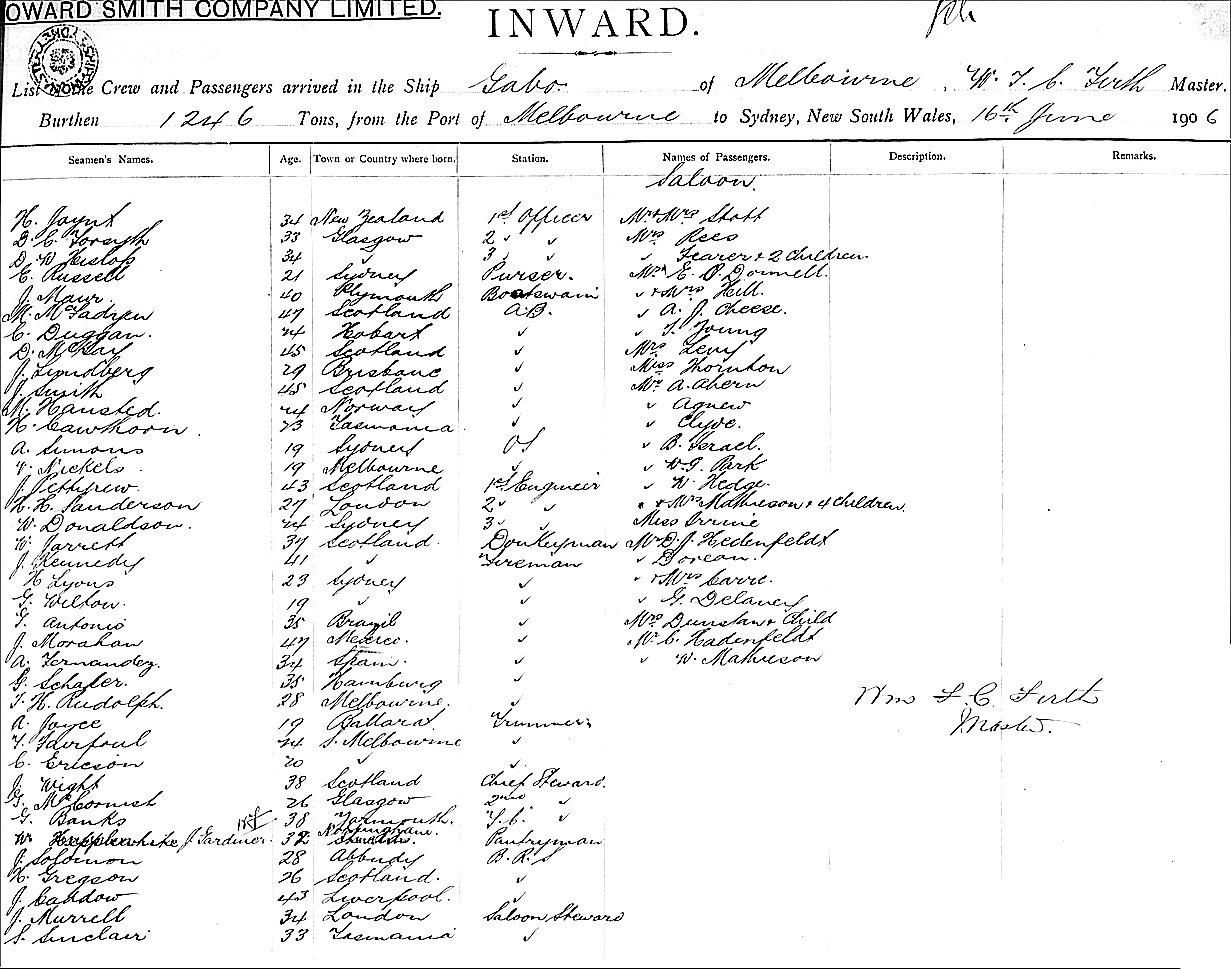 OWARD SMITH COMPANY LIMITED.
INWARD.
List of the Crew and Passengers arrived in the Ship Gabo of Melbourne, W. F. C. Firth Master.
Burthen 1246 Tons, from the Port of Melbourne to Sydney, New South Wales, 16th June 1906
Seamen's Names. Age. Town or Country where born. Station. Names of Passengers. Description. Remarks.
Saloon.
H. Joynt 34 New Zealand 1st Officer Mr & Mrs Stott
D. C. Forsyth 33 Glasgow 2 " " Mrs Rees
D. W. Hislop 34 " 3 " " Fearer & 2 Children
E. Russell 21 Sydney Purser. Mr E. O. Donnell.
J. Maur. 40 Plymouth Boatswain " & Mrs Hill.
M. McFadyen 47 Scotland A.B. " A. J. Cheese.
C. Duggan. 24 Hobart " " T. Young
D. McKay 45 Scotland " Mrs Levy
J. Lyndberg 29 Brisbane " Miss Thornton
J. Smith 45 Scotland " Mr A. Ahern
M. Hansted. 24 Norway " " Agnew
H. Cawthorn. 23 Tasmania " " Clyde.
A. Simons 19 Sydney OS " B. Israel.
V. Nickels. 19 Melbourne " " W. G. Park
J. Pettyrew. 43 Scotland 1st Engineer " W. Hedge.
H. H. Sanderson 27 London 2 " " " & Mrs Mathieson & 4 Children
W. Donaldson. 24 Sydney 3 " " Miss Irvine
W. Jarrett 37 Scotland. Donkeyman Mr D. J. Hedenfeldt
J. Kennedy 41 " Fireman " Dorean.
H Lyons 23 Sydney " " & Mrs Carre.
G. Wilton. 19 " " " G. Delaney
G. Antonio 35 Brazil " Mrs Dunstan & Child
J. Morahan 47 Mexico. " Mr C. Hadenfeldt
A. Fernandez. 34 Spain. " " W. Mathieson
G. Schafer. 35 Hamburg "
T. H. Rudolph. 28 Melbourne. "
Wm F. C. Firth
Master.
A. Joyce 19 Ballarat Trimmer.
T. Fairfoul 24 S. Melbourne "
C. Ericson 20 " "
J. Wight 38 Scotland Chief Steward.
G. McCornish 26 Glasgow 2nd "
G. Banks 38 Yarmouth. F.C. "
W. Hepplewhite J Gardiner. 32 Nottingham. Pantryman
J. Solomon 28 B.R.S
H. Gregson 26 Scotland. "
J. Caddow 43 Liverpool. "
J. Murrell 34 London Saloon Steward
S. Sinclair 33 Tasmania "